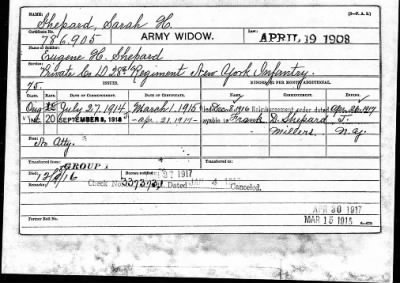 NAME: (3-P. A. L.)
Shepard, Sarah H.
Certificate No. ARMY WIDOW. Law:
786.905 APRIL 19 1908
Name of Soldier:
Eugene H. Shepard
Service:
Private Co. D 28th Regiment New York Infantry.
RATE. DATE OF COMMENCEMENT. DATE OF CERTIFICATE.
Aug 12 July 27, 1914 March 1, 1915 Reimbursement under
INC. 20 SEPTEMBER 8, 1916 Apr. 21, 1917 payable to Frank D. Shepard
No Atty. Millers, N.Y.
Transferred from Transferred to
GROUP 1
Died 12/2/16 1917
Check No. 3373731 Dated JAN 4 Canceled.
APR 30 1917
Former Roll No. MAR 15 1915